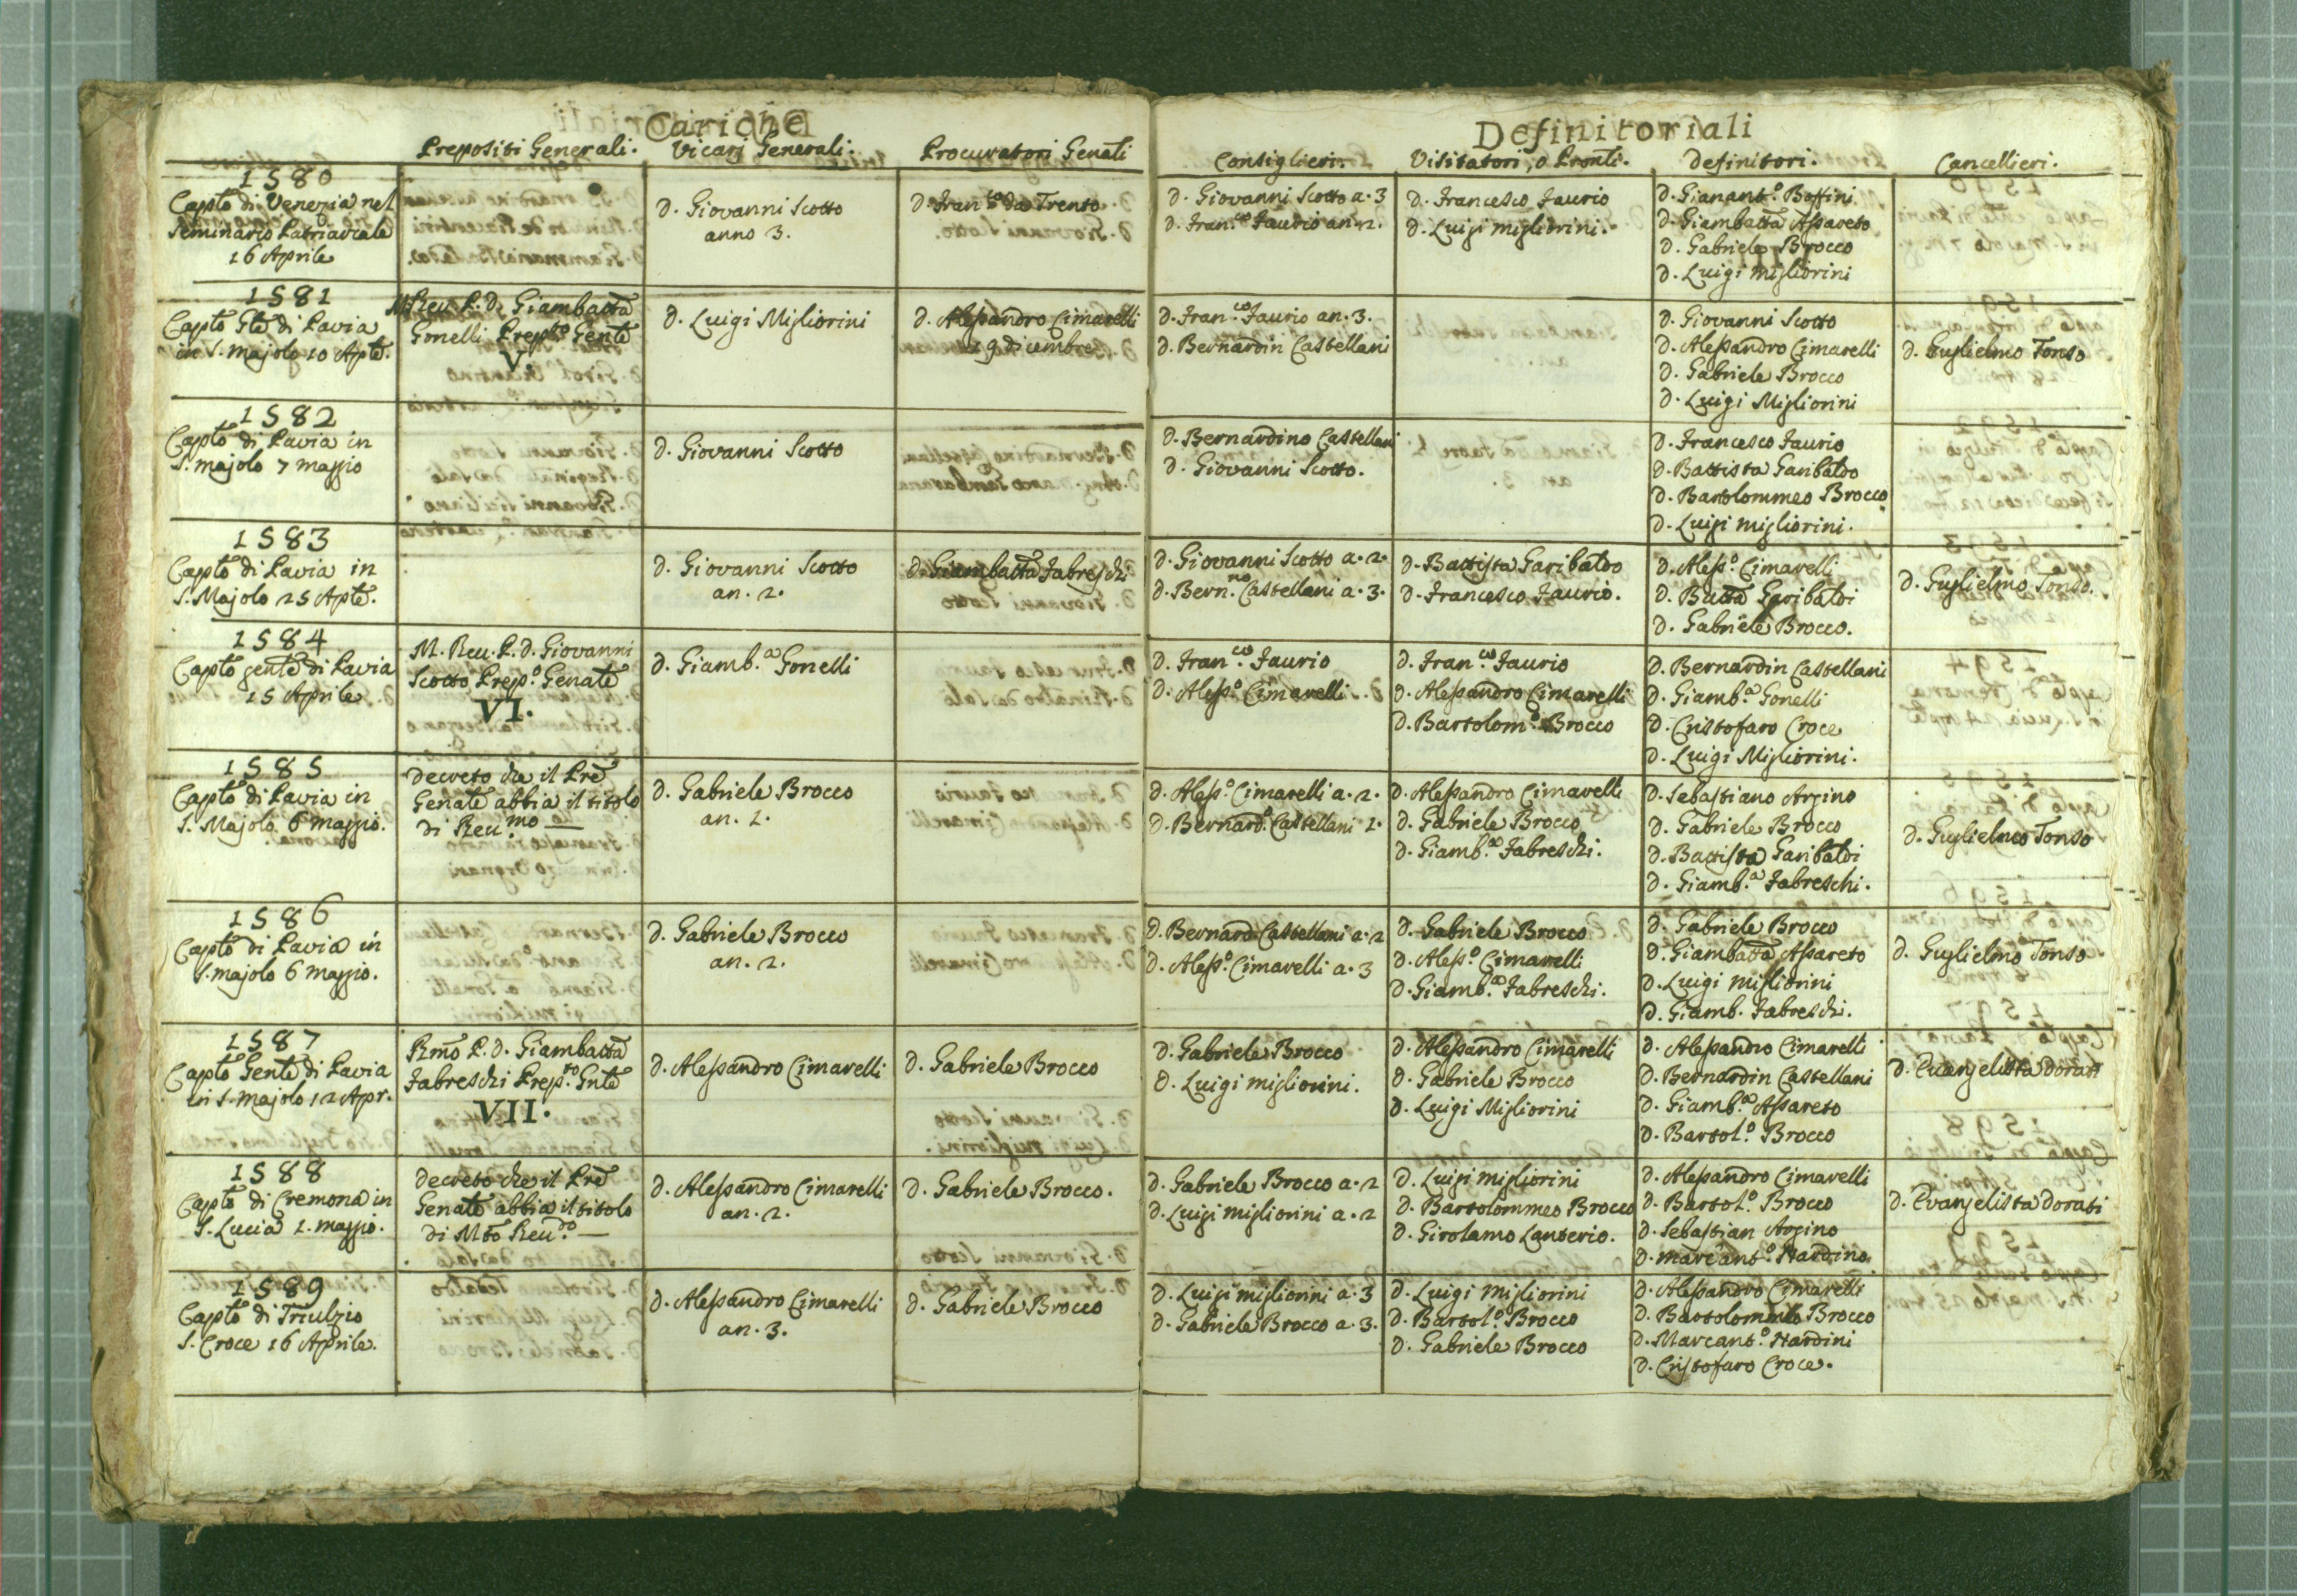 Cariche
Definitoriali
Prepositi Generali.
Vicari Generali.
Procuratori Genãli
Consiglieri.
Visitatori, o Pronti.
Definitori.
Cancellieri.
1580
Capto di Venezia nel
Seminario Patriarcale
16 Aprile
D. Giovanni Scotto
anno 3.
D. Fran.co da Trento
D. Giovanni Scotto a. 3
D. Fran.co Faurio an. 2.
D. Francesco Faurio
D. Luigi Migliorini.
D. Gianant.o Boffini
D. Giambatta Assareto
D. Gabriele Brocco
D. Luigi Migliorini
1581
Capto Gle di Pavia
in S. Majolo 10 Aple.
M. Reu. P. D. Giambatta
Gonelli Prep.to Genle
V.
D. Luigi Migliorini
D. Alessandro Cimarelli
19 dicembre
D. Fran.co Faurio an. 3.
D. Bernardin Castellani
D. Giovanni Scotto
D. Alessandro Cimarelli
D. Gabriele Brocco
D. Luigi Migliorini
D. Guglielmo Tonso
1582
Capto di Pavia in
S. Majolo 7 maggio
D. Giovanni Scotto
D. Bernardino Castellani
D. Giovanni Scotto.
D. Francesco Faurio
D. Battista Garibaldo
D. Bartolommeo Brocco
D. Luigi Migliorini.
1583
Capto di Pavia in
S. Majolo 25 Aple.
D. Giovanni Scotto
an. 2.
D. Giambatta Fabreschi
D. Giovanni Scotto a. 2.
D. Bern.no Castellani a. 3.
D. Battista Garibaldo
D. Francesco Faurio.
D. Aless.o Cimarelli
D. Batta Garibaldi
D. Gabriele Brocco.
D. Guglielmo Tonso.
1584
Capto genle di Pavia
15 Aprile
M. Reu. P. D. Giovanni
Scotto Prep.o Genale
VI.
D. Giamb.a Gonelli
D. Fran.co Faurio
D. Aless.o Cimarelli
D. Fran.co Faurio
D. Alessandro Cimarelli
D. Bartolom.o Brocco
D. Bernardin Castellani
D. Giamb.a Gonelli
D. Cristofaro Croce
D. Luigi Migliorini.
1585
Capto di Pavia in
S. Majolo 6 maggio.
Decreto che il Pre
Genale abbia il titolo
di Reu.mo —
D. Gabriele Brocco
an. 1.
D. Aless.o Cimarelli a. 2.
D. Bernard.o Castellani 1.
D. Alessandro Cimarelli
D. Gabriele Brocco
D. Giamb.a Fabreschi.
D. Sebastiano Argino
D. Gabriele Brocco
D. Battista Garibaldi
D. Giamb.a Fabreschi.
D. Guglielmo Tonso
1586
Capto di Pavia in
S. Majolo 6 Maggio.
D. Gabriele Brocco
an. 2.
D. Bernard. Castellani a. 2
D. Aless.o Cimarelli a. 3
D. Gabriele Brocco
D. Aless.o Cimarelli
D. Giamb.a Fabreschi.
D. Gabriele Brocco
D. Giambatta Assareto
D. Luigi Migliorini
D. Giamb. Fabreschi.
D. Guglielmo Tonso
1587
Capto Genle di Pavia
in S. Majolo 12 Apr.
Rmo P. D. Giambatta
Fabreschi Prep.to Gnle
VII.
D. Alessandro Cimarelli
D. Gabriele Brocco
D. Gabriele Brocco
D. Luigi Migliorini.
D. Alessandro Cimarelli
D. Gabriele Brocco
D. Luigi Migliorini
D. Alessandro Cimarelli
D. Bernardin Castellani
D. Giamb.a Assareto
D. Bartol.o Brocco
D. Evangelista Dorati
1588
Capto di Cremona in
S. Lucia 2. maggio.
Decreto che il Pre
Genale abbia il titolo
di Mto Reu.do —
D. Alessandro Cimarelli
an. 2.
D. Gabriele Brocco.
D. Gabriele Brocco a. 2
D. Luigi Migliorini a. 2
D. Luigi Migliorini
D. Bartolommeo Brocco
D. Girolamo Lanterio.
D. Alessandro Cimarelli
D. Bartol.o Brocco
D. Sebastian Argino
D. Marcant.o Nardino
D. Evangelista Dorati
1589
Capto di Triulzio
S. Croce 16 Aprile.
D. Alessandro Cimarelli
an. 3.
D. Gabriele Brocco
D. Luigi Migliorini a. 3
D. Gabriele Brocco a. 3.
D. Luigi Migliorini
D. Bartol.o Brocco
D. Gabriele Brocco
D. Alessandro Cimarelli
D. Bartolommeo Brocco
D. Marcant.o Nardini
D. Cristofaro Croce.